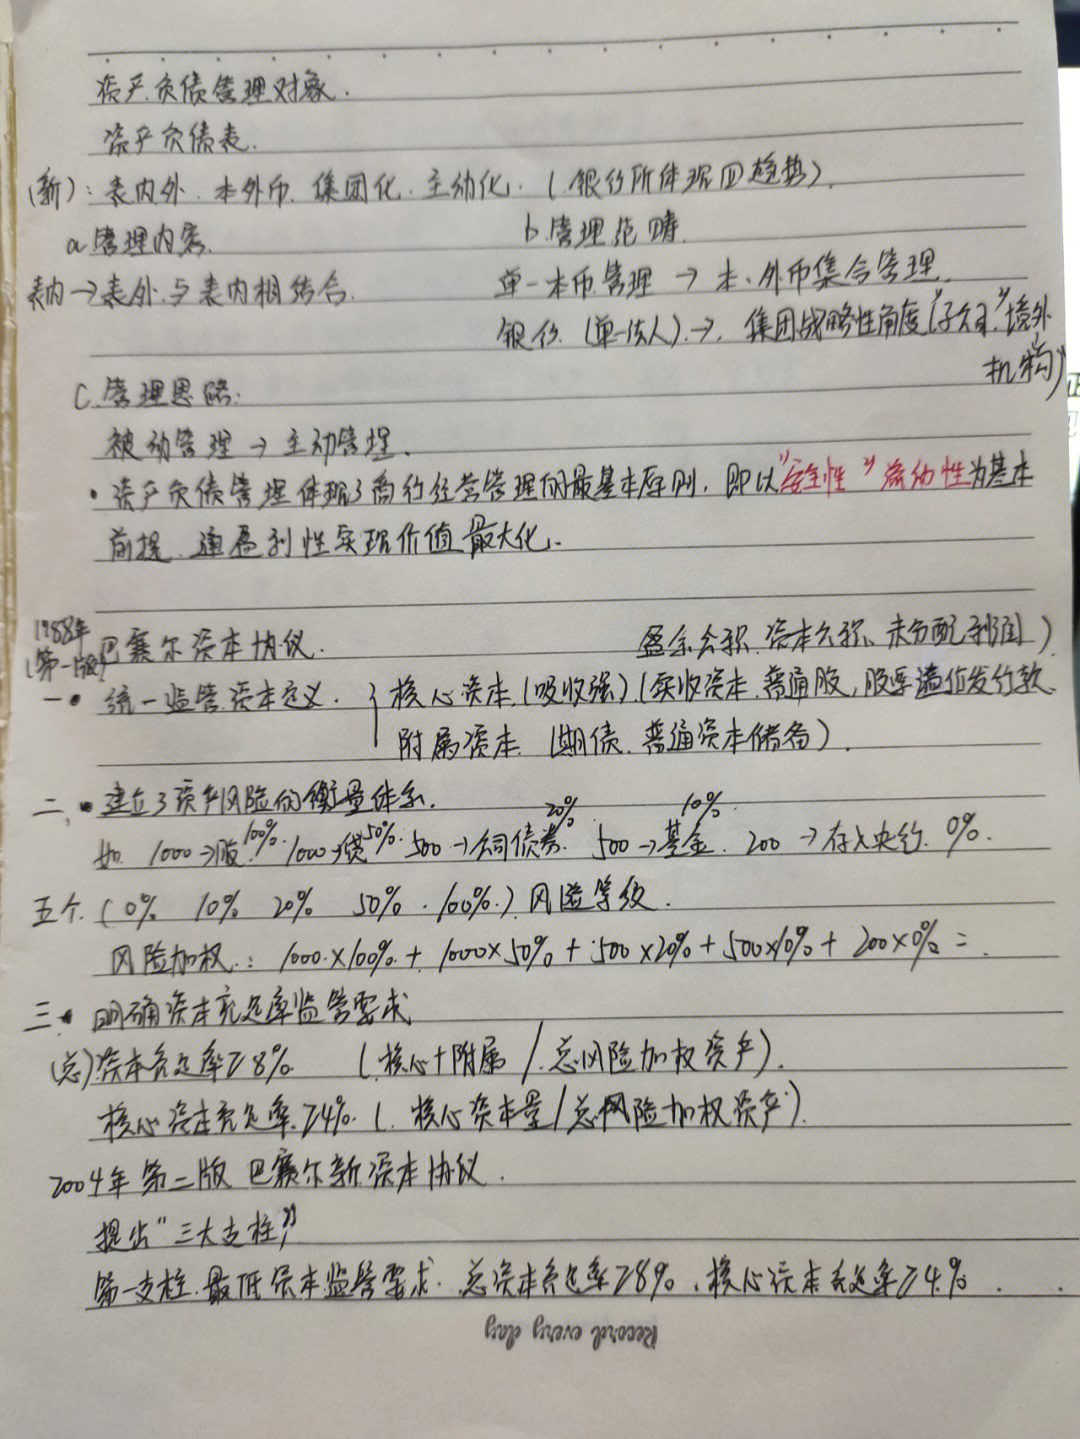 资产负债管理对象.
资产负债表.
(新): 表内外. 本外币. 集团化. 主动化. (银行所体现四趋势).
a. 管理内容.
b. 管理范畴.
表内→表外与表内相结合.
单一本币管理 → 本、外币集合管理.
银行. (单一法人).→. 集团战略性角度("子公司"境外
机构)
C. 管理思路:
被动管理 → 主动管理.
• 资产负债管理体现了商行经营管理的最基本原则, 即以"安全性" 流动性为基本
前提. 通盈利性实现价值最大化.
1988年
(第一版) 巴塞尔资本协议.
盈余公积、资本公积、未分配利润)
一• 统一监管资本定义. { 核心资本.(吸收强)(实收资本. 普通股, 股票溢价发行款.
附属资本. (期债. 普通资本储备).
二、• 建立了资产风险的衡量体系.
如. 1000→股100%. 1000→贷50%. 500→公司债券20%. 500→基金10%. 200→存入央行. 0%.
五个. (0% 10% 20% 50%. 100%.) 风险等级.
风险加权.: 1000.×100%.+. 1000×50% + 500×20% + 500×10% + 200×0% =
三• 明确资本充足率监管要求
(总)资本充足率≥8%. (.核心+附属 / 总风险加权资产).
核心资本充足率.≥4%. (. 核心资本量 / 总风险加权资产.)
2004年 第二版 巴塞尔新资本协议.
提出"三大支柱"
第一支柱. 最低资本监管要求. 总资本充足率≥8%. 核心资本充足率≥4%.
Record every day